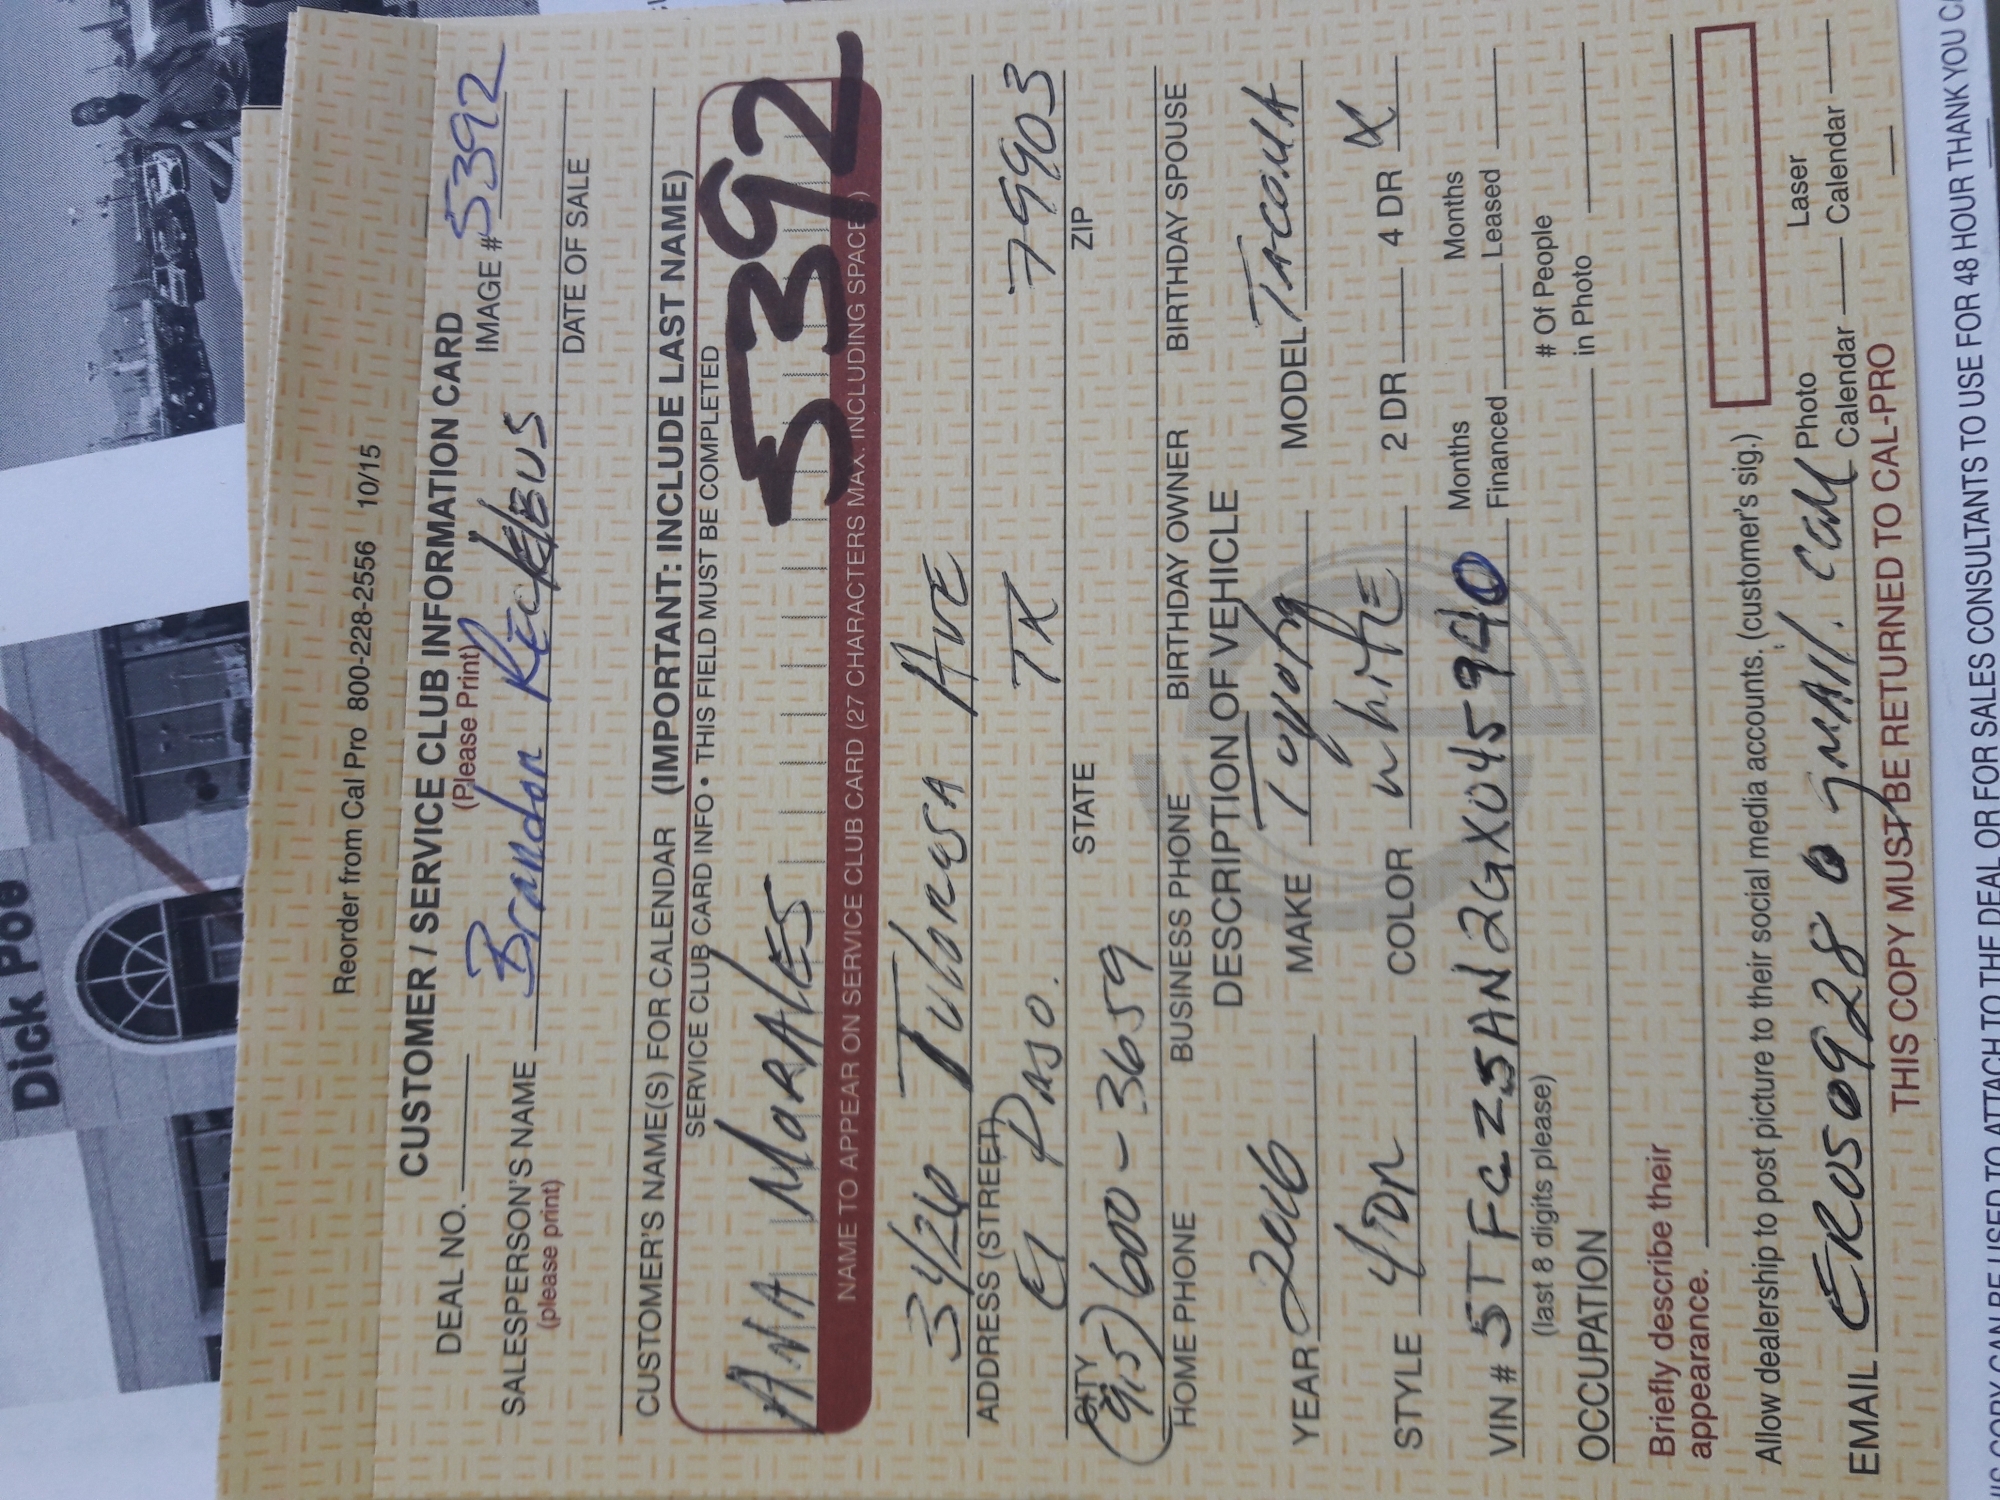 Dick Poe
Reorder from Cal Pro 800-228-2556 10/15
CUSTOMER / SERVICE CLUB INFORMATION CARD
DEAL NO. (Please Print) IMAGE # 5392
SALESPERSON'S NAME Brandon Reckbus
(please print) DATE OF SALE
CUSTOMER'S NAME(S) FOR CALENDAR (IMPORTANT: INCLUDE LAST NAME)
SERVICE CLUB CARD INFO • THIS FIELD MUST BE COMPLETED
ANA MORALES 5392
NAME TO APPEAR ON SERVICE CLUB CARD (27 CHARACTERS MAX. INCLUDING SPACES)
3426 Tularosa AVE
ADDRESS (STREET)
El Paso. TX 79903
CITY STATE ZIP
(915) 600-3659
HOME PHONE BUSINESS PHONE BIRTHDAY OWNER BIRTHDAY SPOUSE
DESCRIPTION OF VEHICLE
YEAR 2016 MAKE Toyota MODEL Tacoma
STYLE 4DR COLOR white 2 DR 4 DR X
VIN # 5TFCZ5AN2GX045940 Months Financed Months Leased
(last 8 digits please)
OCCUPATION # Of People in Photo
Briefly describe their
appearance.
Allow dealership to post picture to their social media accounts. (customer's sig.)
EMAIL EROS0928@gmail.com Photo Calendar Laser Calendar
THIS COPY MUST BE RETURNED TO CAL-PRO
COPY CAN BE USED TO ATTACH TO THE DEAL OR FOR SALES CONSULTANTS TO USE FOR 48 HOUR THANK YOU